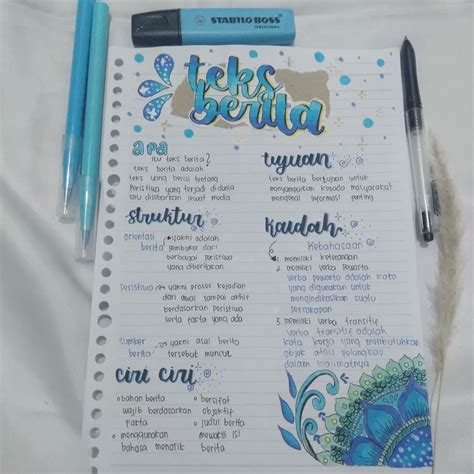 STABILO BOSS
ORIGINAL
teks
berita
apa
itu teks berita?
teks berita adalah
teks yang berisi tentang
peristiwa yang terjadi di dunia
lalu disiarkan lewat media
tujuan
teks berita bertujuan untuk
menyampaikan kepada masyarakat
mengenai informasi penting
struktur
orientasi
berita
yakni adalah
pembuka dari
berbagai peristiwa
yang diberitakan
peristiwa
yakni proses kejadian
dari awal sampai akhir
berdasarkan peristiwa
serta fakta yang ada
sumber
berita
yakni asal berita
tersebut muncul
kaidah
kebahasaan
1. memiliki keterangan
2. memiliki verba pewarta
verba pewarta adalah kata
yang digunakan untuk
mengindikasikan suatu
percakapan
3. memiliki verba transitif
verba transitif adalah
kata kerja yang membutuhkan
objek atau pelengkap
dalam kalimatnya
ciri ciri
bahan berita
wajib berdasarkan
fakta
menggunakan
bahasa menarik
bersifat
objektif
judul berita
mewakili isi
berita